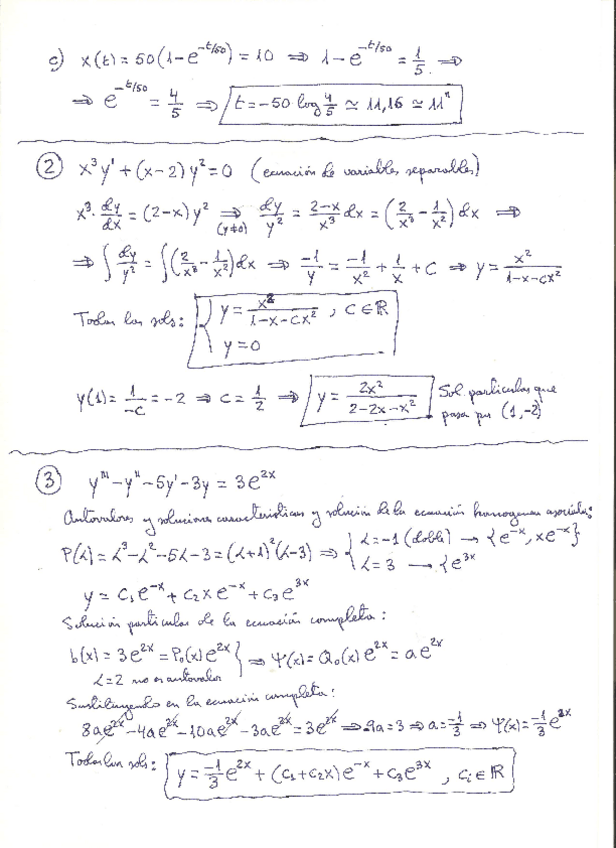 c) x(t) = 50(1-e^{-t/50}) = 10 ⇒ 1-e^{-t/50} = 1/5 ⇒
⇒ e^{-t/50} = 4/5 ⇒ t = -50 log 4/5 ≃ 11,16 ≃ 11"
② x³y' + (x-2)y² = 0 (ecuación de variables separables)
x³·dy/dx = (2-x)y² ⇒ (y≠0) dy/y² = (2-x)/x³ dx = (2/x³ - 1/x²)dx ⇒
⇒ ∫dy/y² = ∫(2/x³ - 1/x²)dx ⇒ -1/y = -1/x² + 1/x + C ⇒ y = x²/(1-x-cx²)
Todas las sols: { y = x²/(1-x-cx²), C∈ℝ
y=0
y(1) = 1/-c = -2 ⇒ c = 1/2 ⇒ y = 2x²/(2-2x-x²) Sol. particular que
pasa por (1,-2)
③ y''' - y'' - 5y' - 3y = 3e^{2x}
Autovalores y soluciones características y solución de la ecuación homogénea asociada:
P(λ) = λ³-λ²-5λ-3 = (λ+1)²(λ-3) ⇒ { λ=-1 (doble) → {e^{-x}, xe^{-x}}
λ=3 → {e^{3x}
y = c₁e^{-x} + c₂xe^{-x} + c₃e^{3x}
Solución particular de la ecuación completa:
b(x) = 3e^{2x} = P₀(x)e^{2x} } ⇒ Ψ(x) = Q₀(x)e^{2x} = ae^{2x}
λ=2 no es autovalor
Sustituyendo en la ecuación completa:
8ae^{2x} - 4ae^{2x} - 10ae^{2x} - 3ae^{2x} = 3e^{2x} ⇒ -9a = 3 ⇒ a = -1/3 ⇒ Ψ(x) = -1/3 e^{2x}
Todas las sols: y = -1/3 e^{2x} + (c₁+c₂x)e^{-x} + c₃e^{3x}, cᵢ∈ℝ